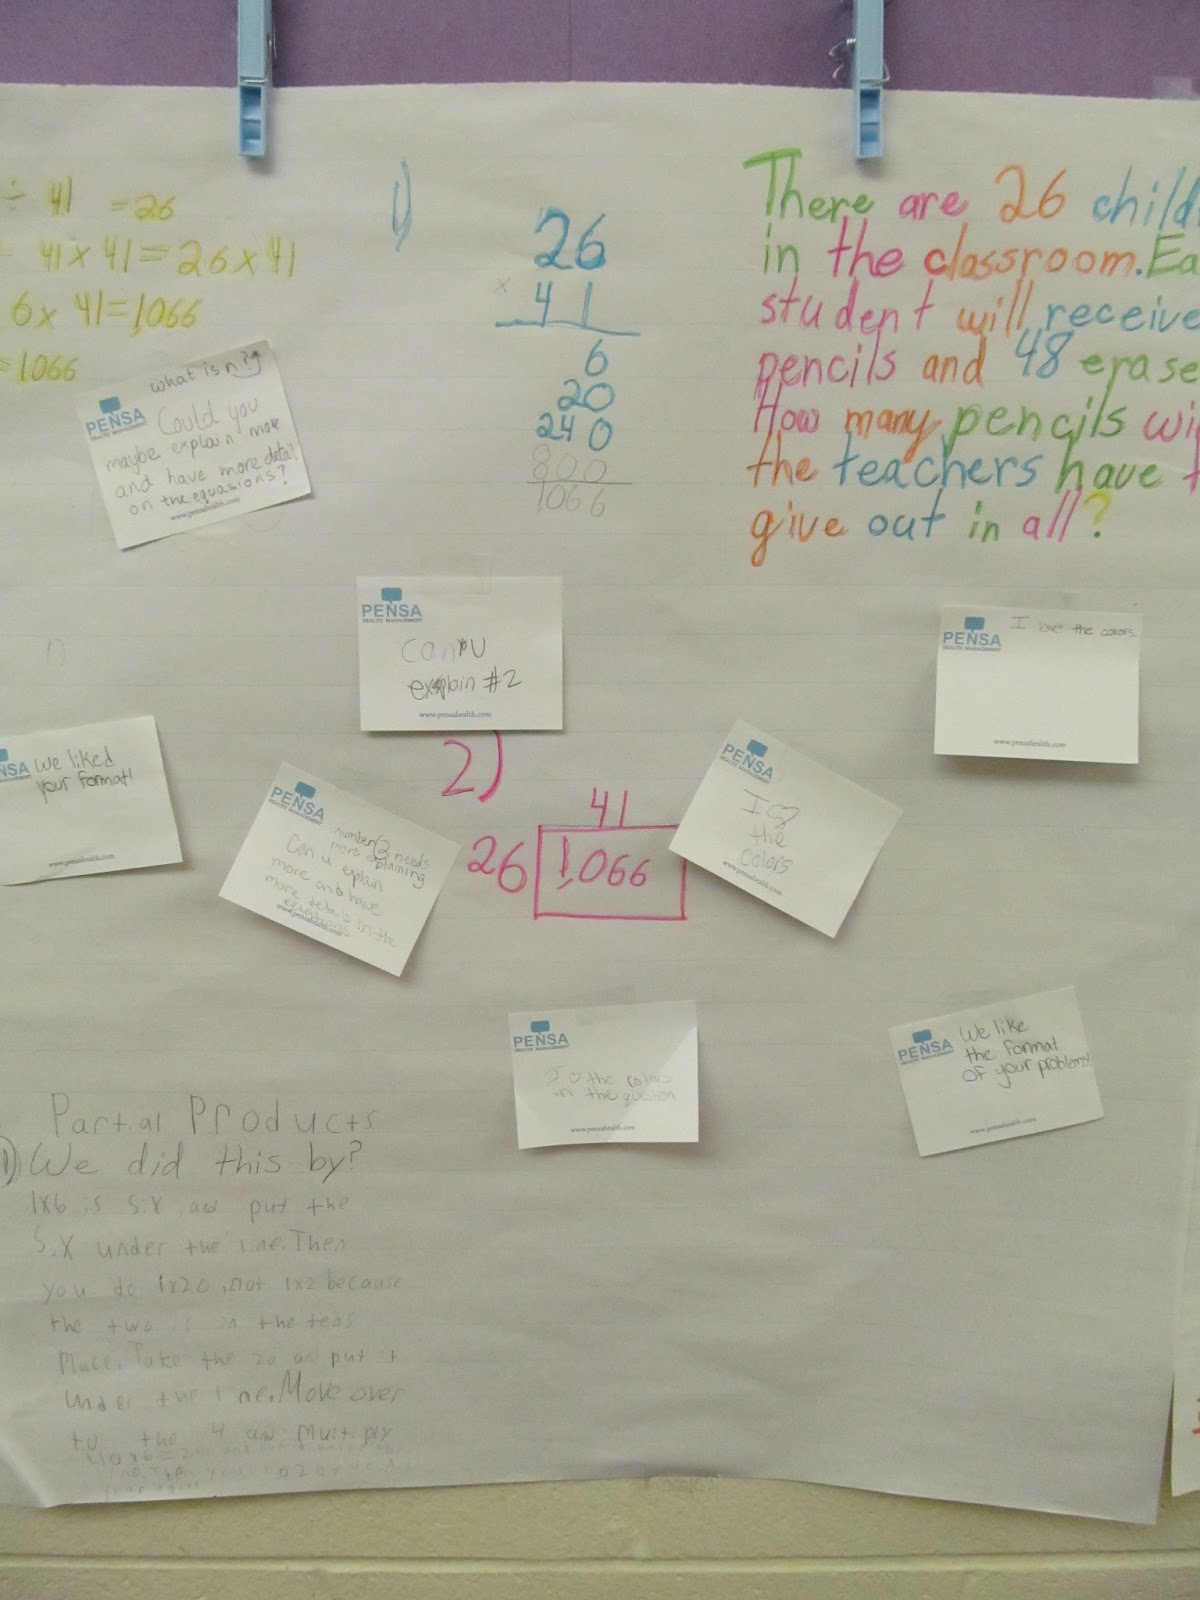 ÷ 41 = 26
41 x 41 = 26 x 41
6 x 41 = 1066
= 1066
1)
26
x 41
6
20
240
800
1066
There are 26 child
in the classroom. Ea
student will receive
pencils and 48 erase
How many pencils wi
the teachers have t
give out in all?
what is n?
PENSA
HEALTH MANAGEMENT
Could you
maybe explain more
and have more detail
on the equasions?
www.pensahealth.com
n
PENSA
HEALTH MANAGEMENT
can u
explain #2
www.pensahealth.com
PENSA
HEALTH MANAGEMENT
I love the colors
www.pensahealth.com
NSA
we liked
your format!
www.pensahealth.com
PENSA
HEALTH MANAGEMENT
number 2 needs
more explaining
Can u explain
more and have
more details in the
www.pensahealth.com
2)
41
26 1,066
PENSA
HEALTH MANAGEMENT
I ♡
the
colors
www.pensahealth.com
PENSA
HEALTH MANAGEMENT
I ♡ the colors
in the question
www.pensahealth.com
PENSA
HEALTH MANAGEMENT
We like
the format
of your problem!
www.pensahealth.com
Partial Products
1) We did this by?
1x6 is six and put the
six under the line. Then
you do 1x20, not 1x2 because
the two is in the tens
place. Take the 20 and put it
under the line. Move over
to the 4 and multiply
40x6=
Then you